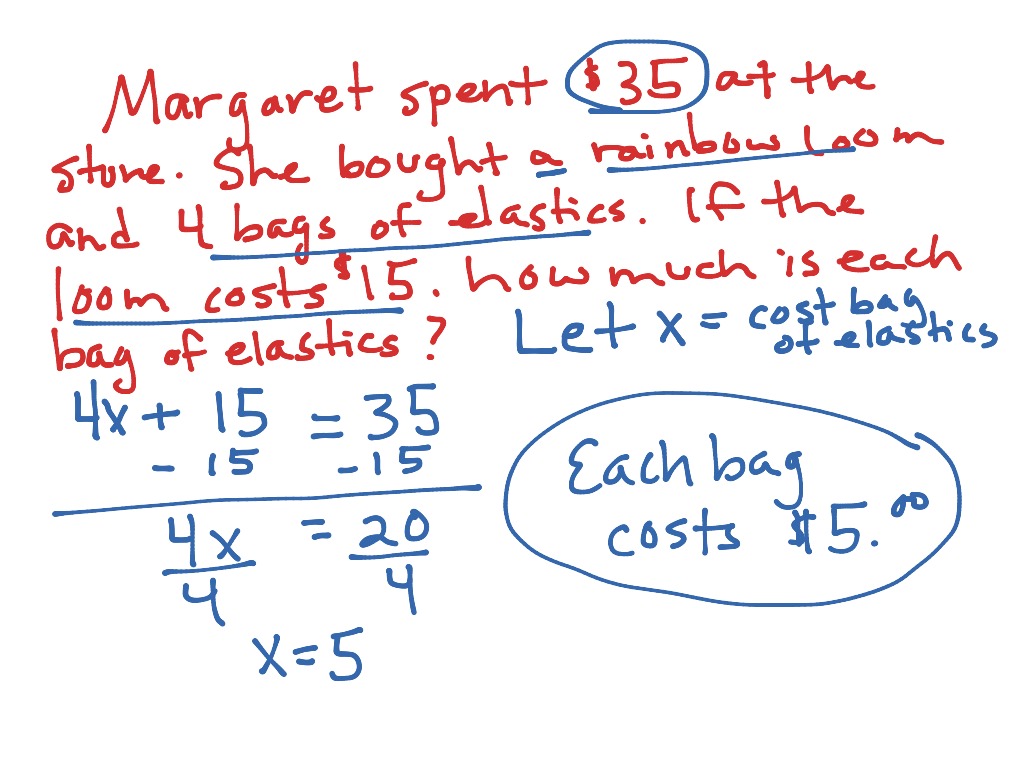 Margaret spent $35 at the
store. She bought a rainbow loom
and 4 bags of elastics. If the
loom costs $15. how much is each
bag of elastics?
Let x = cost bag
of elastics
4x + 15 = 35
- 15 - 15
4x = 20
4 4
x = 5
Each bag
costs $5.00